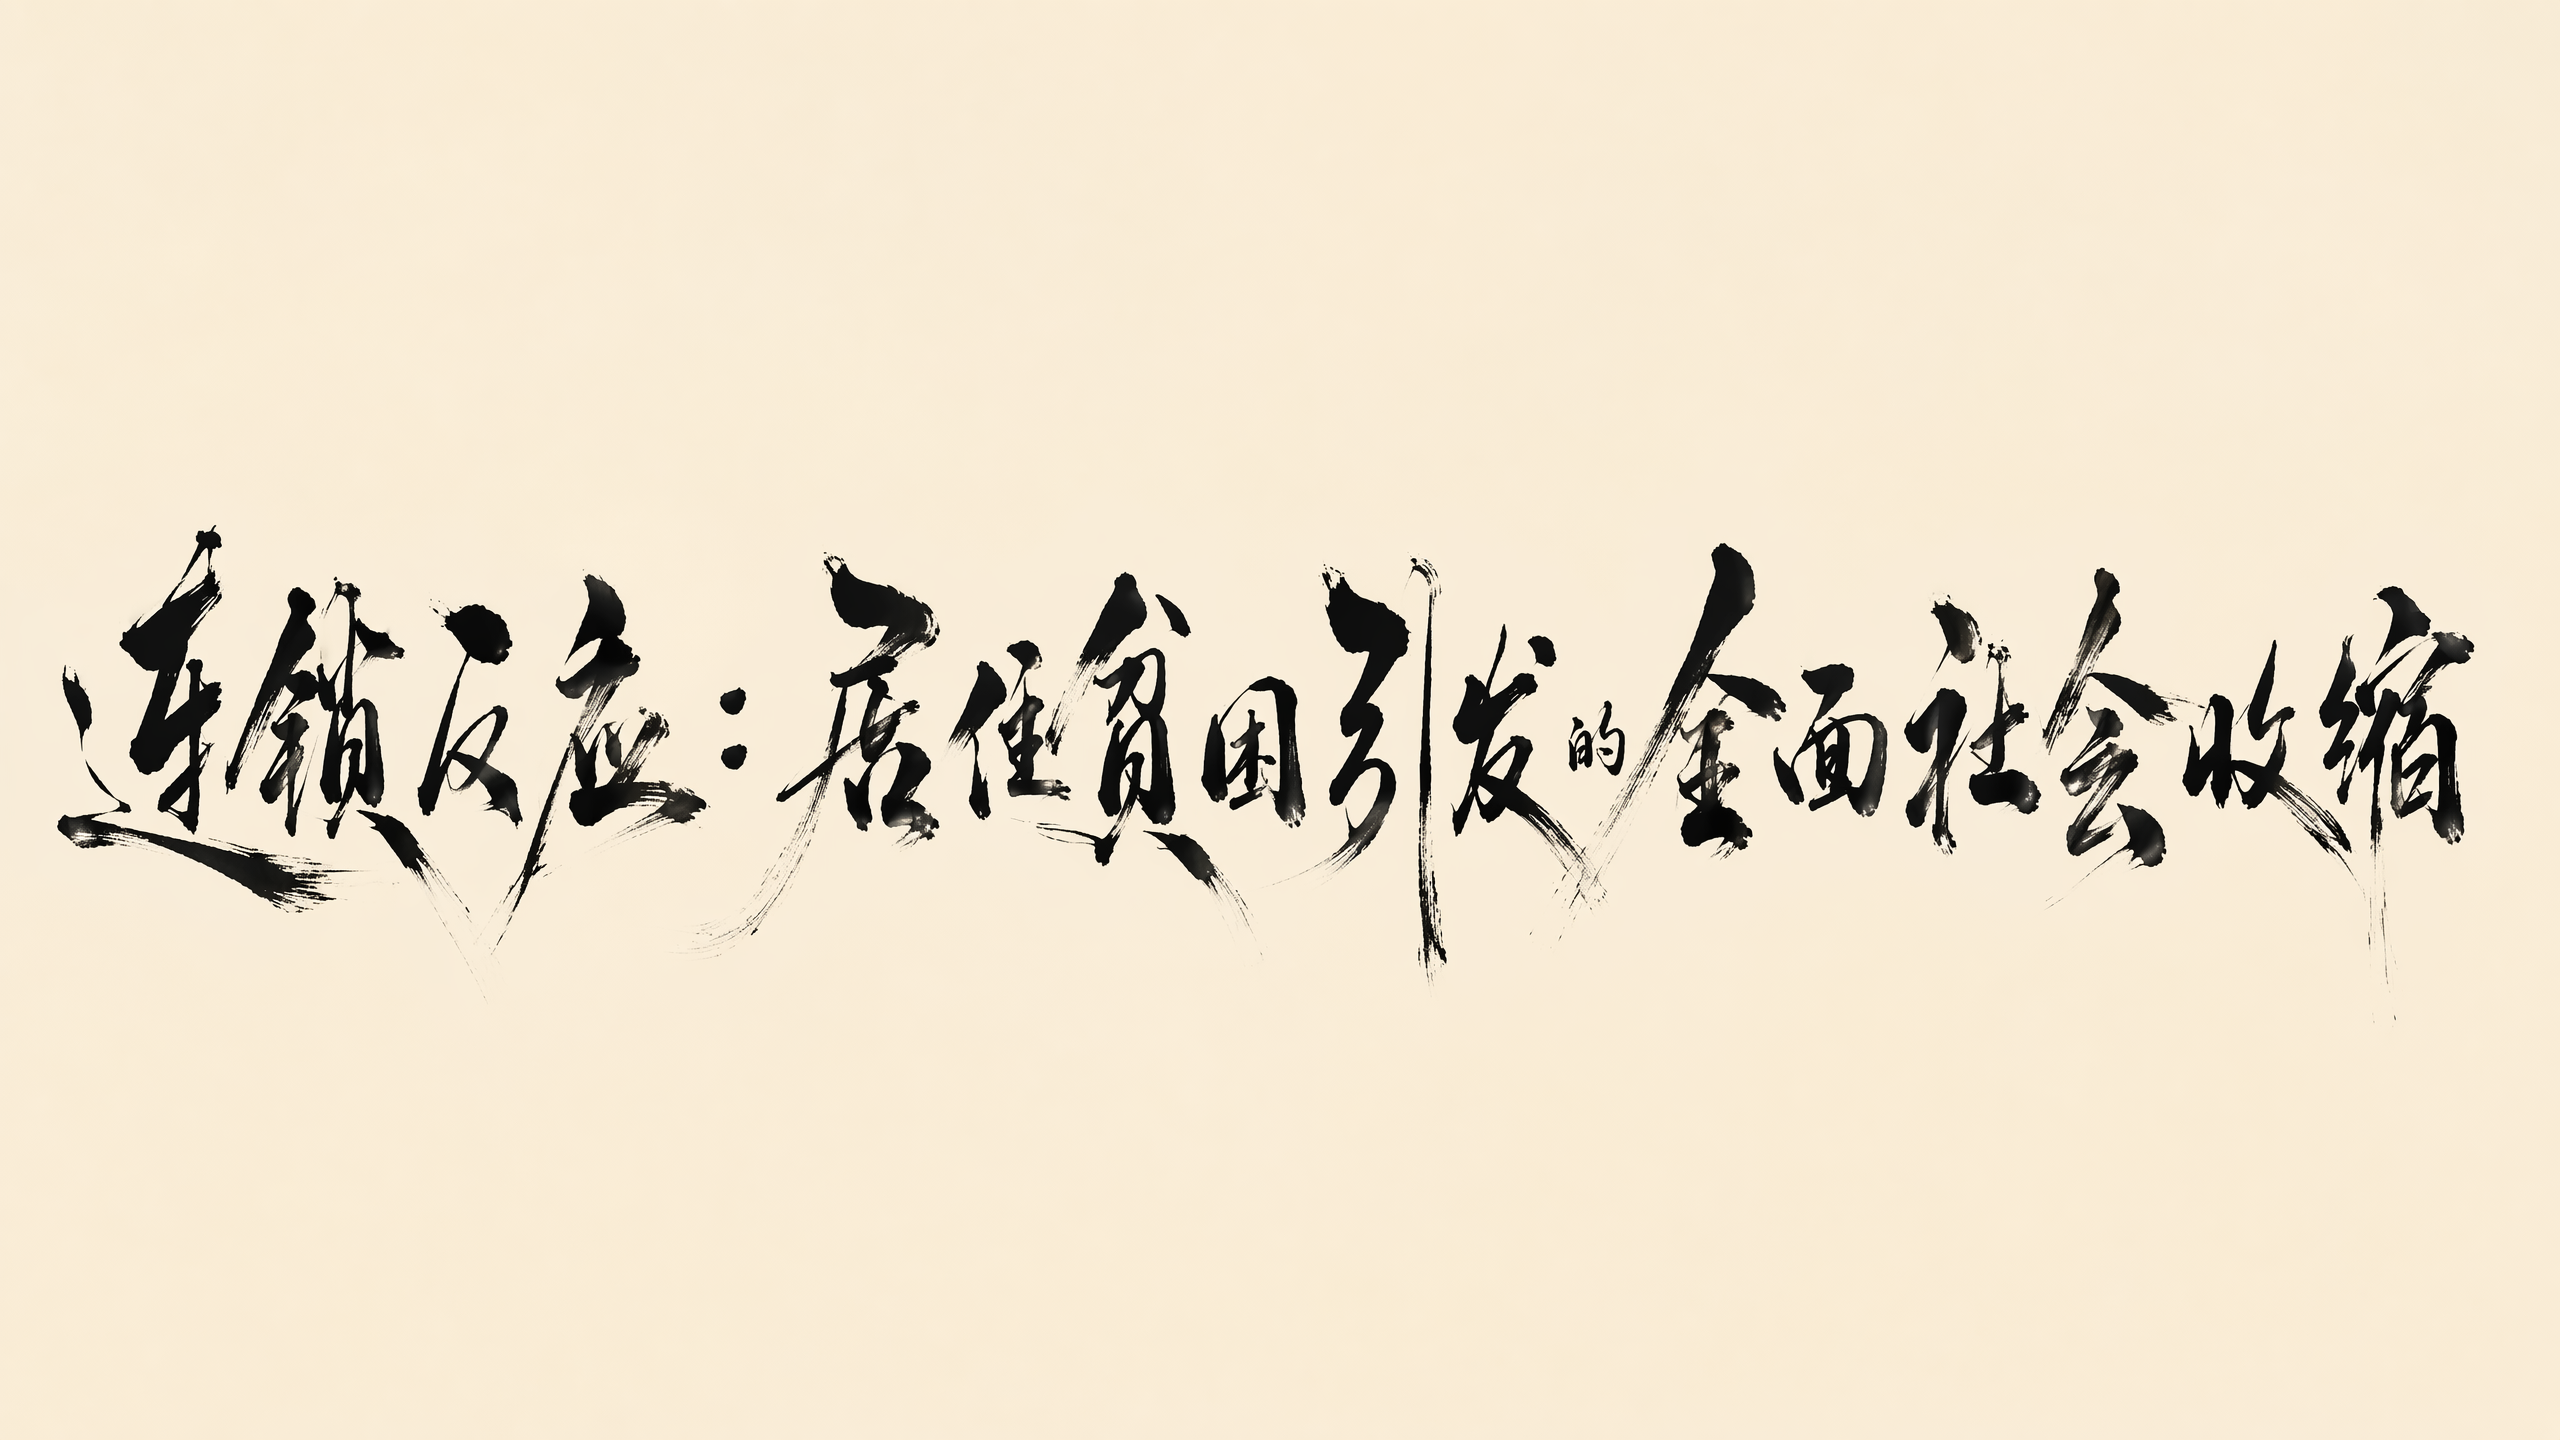 连锁反应：居住贫困引发的全面社会收缩